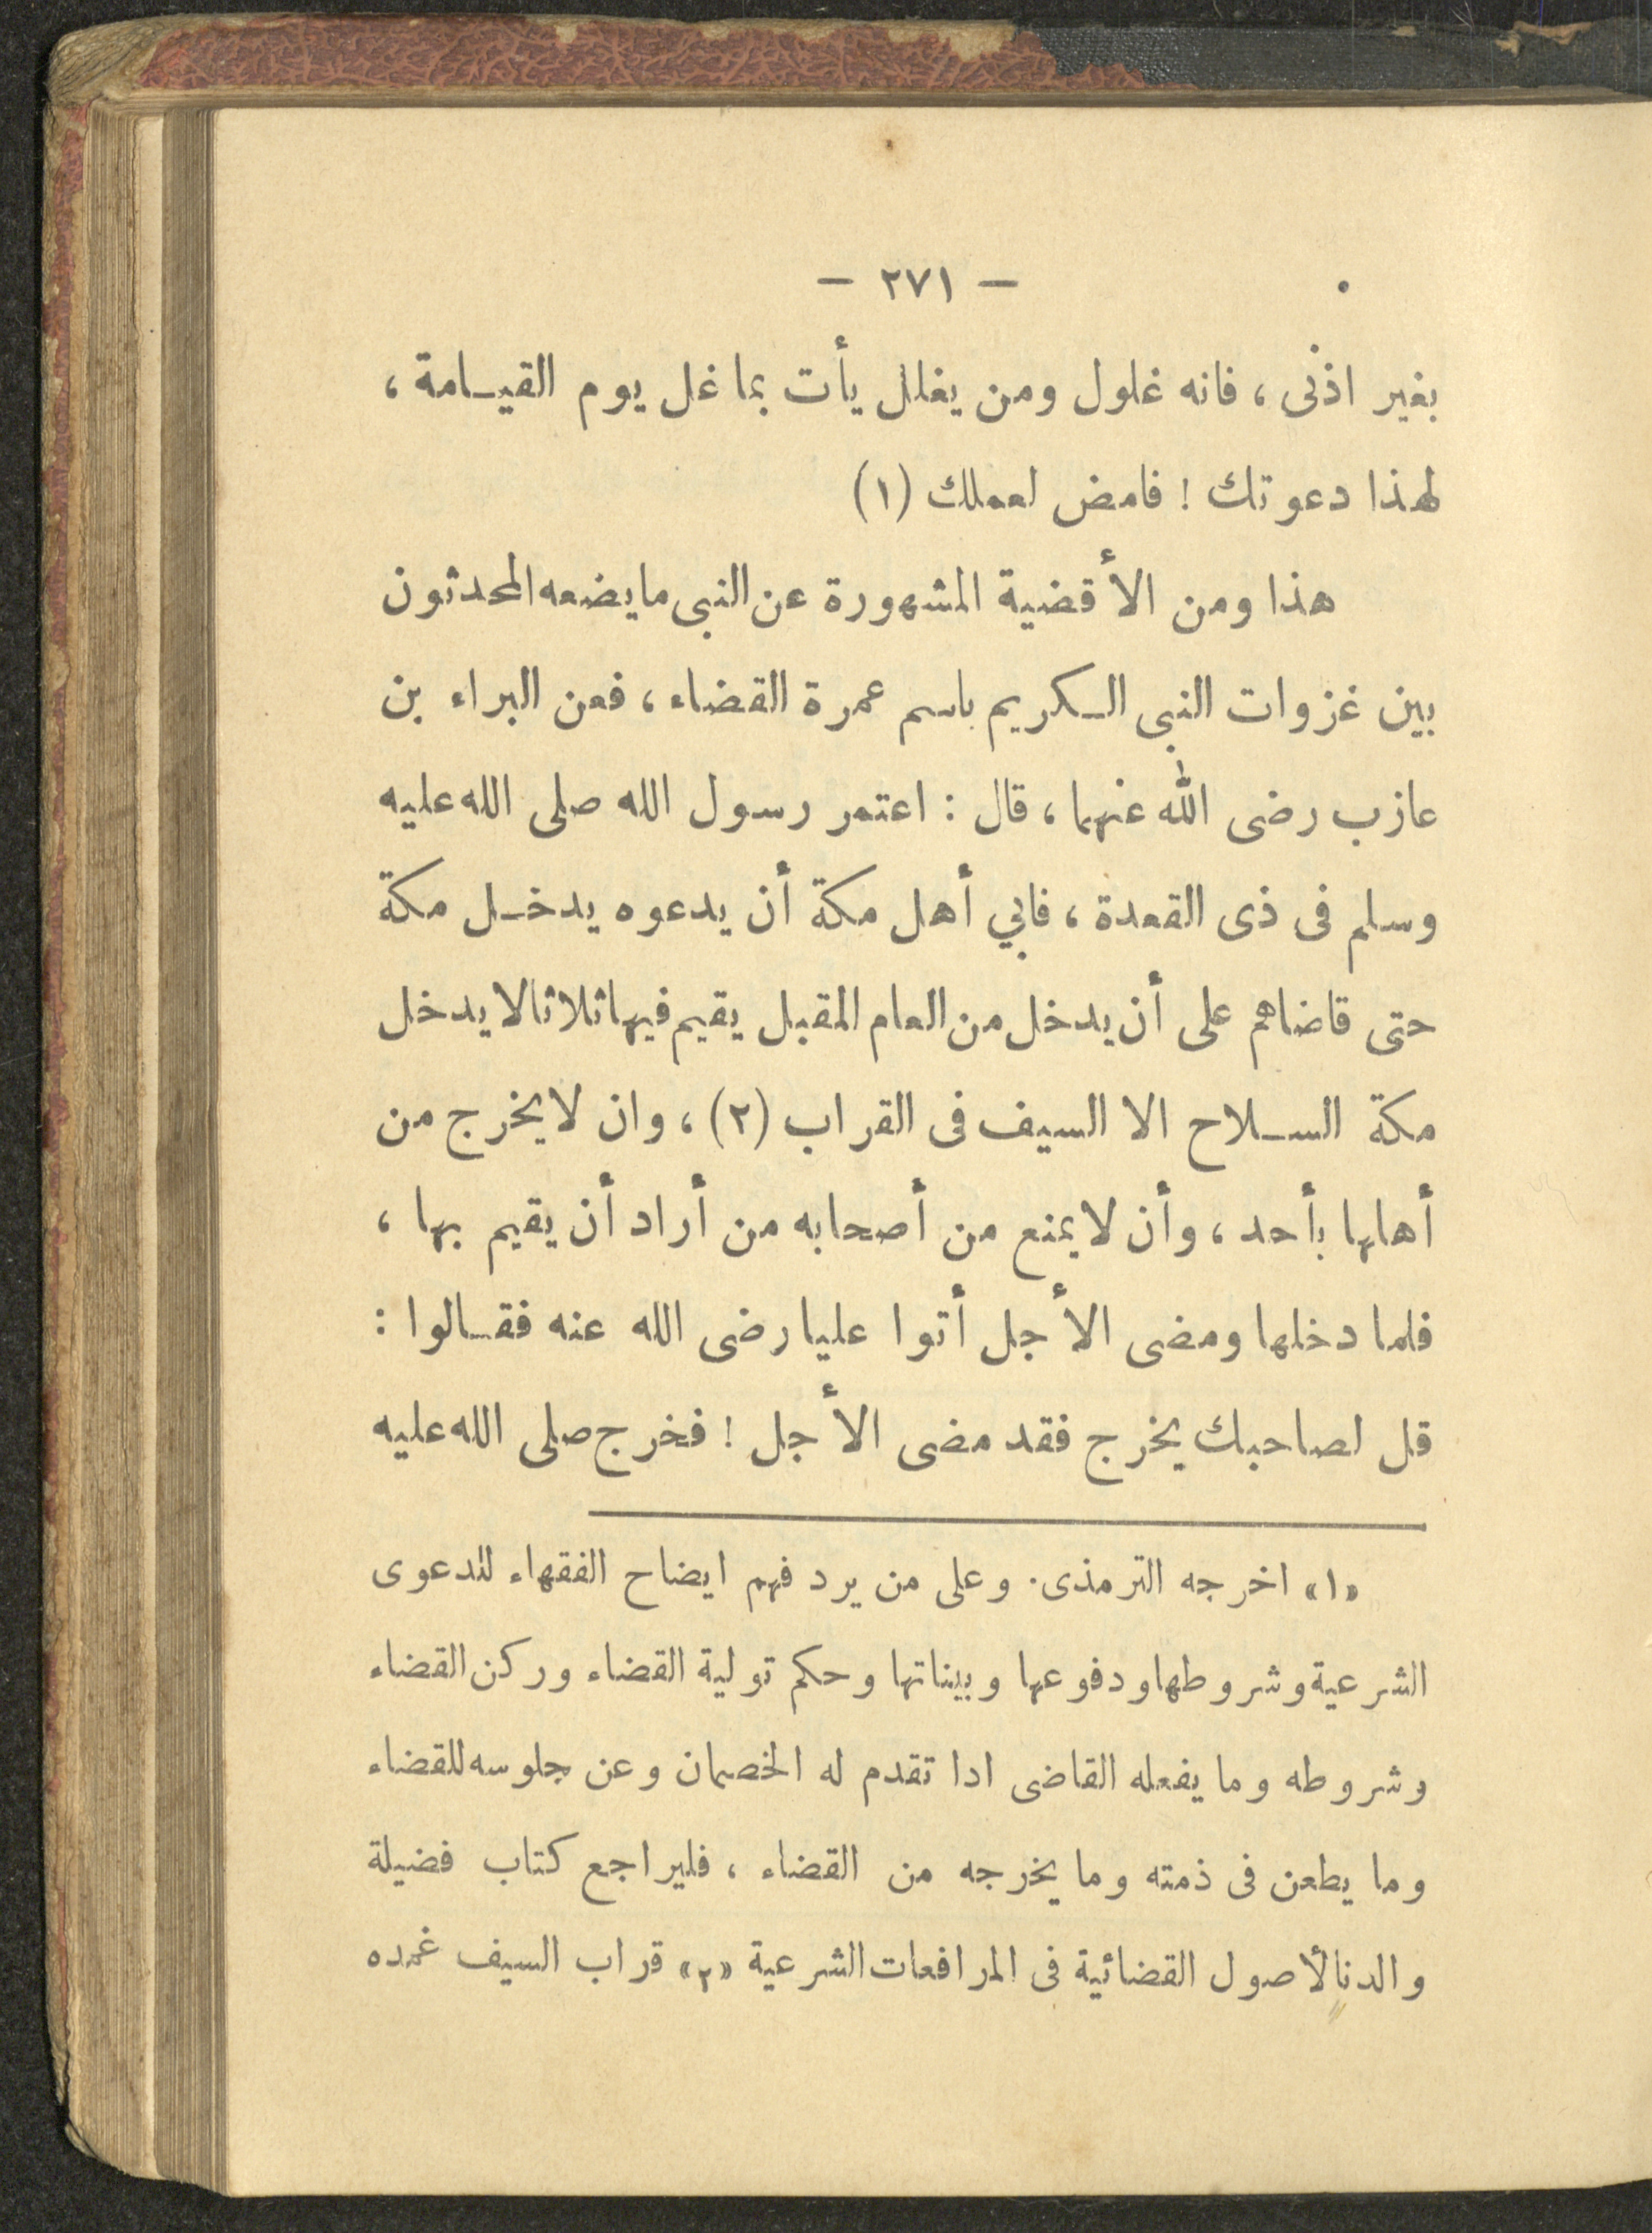 — ٢٧١ —
بغير اذنى ، فانه غلول ومن يغلل يأت بما غل يوم القيامة ،
لهذا دعوتك ! فامض لعملك (١)
هذا ومن الأقضية المشهورة عن النبى مايضعه المحدثون
بين غزوات النبى الكريم باسم عمرة القضاء ، فعن البراء بن
عازب رضى الله عنهما ، قال : اعتمر رسول الله صلى الله عليه
وسلم فى ذى القعدة ، فابي أهل مكة أن يدعوه يدخل مكة
حتى قاضاهم على أن يدخل من العام المقبل يقيم فيها ثلاثا لا يدخل
مكة السلاح الا السيف فى القراب (٢) ، وان لا يخرج من
أهلها بأحد ، وأن لا يمنع من أصحابه من أراد أن يقيم بها ،
فلما دخلها ومضى الأجل أتوا عليا رضى الله عنه فقالوا :
قل لصاحبك يخرج فقد مضى الأجل ! فخرج صلى الله عليه
«١» اخرجه الترمذى . وعلى من يرد فهم ايضاح الفقهاء للدعوى
الشرعية وشروطها ودفوعها وبيناتها وحكم تولية القضاء وركن القضاء
وشروطه وما يفعله القاضى ادا تقدم له الخصمان وعن جلوسه للقضاء
وما يطعن فى ذمته وما يخرجه من القضاء ، فليراجع كتاب فضيلة
والدنا الأصول القضائية فى المرافعات الشرعية «٢» قراب السيف غمده